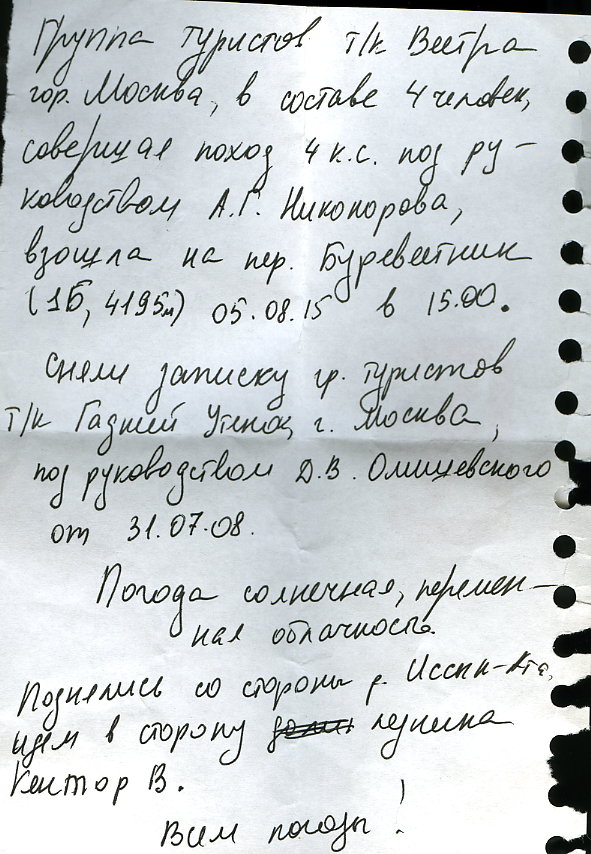 Группа туристов т/к Вестра
гор. Москва, в составе 4 человек,
совершая поход 4 к.с. под ру-
ководством А.Г. Никонорова,
взошла на пер. Буревестник
(1Б, 4195м) 05.08.15 в 15.00.
Сняли записку гр. туристов
т/к Гадкий Утенок, г. Москва,
под руководством Д.В. Омишевского
от 31.07.08.
Погода солнечная, перемен-
ная облачность.
Поднялись со стороны р. Исски-Кта,
идем в сторону ледника
Кентор В.
Всем погоды!